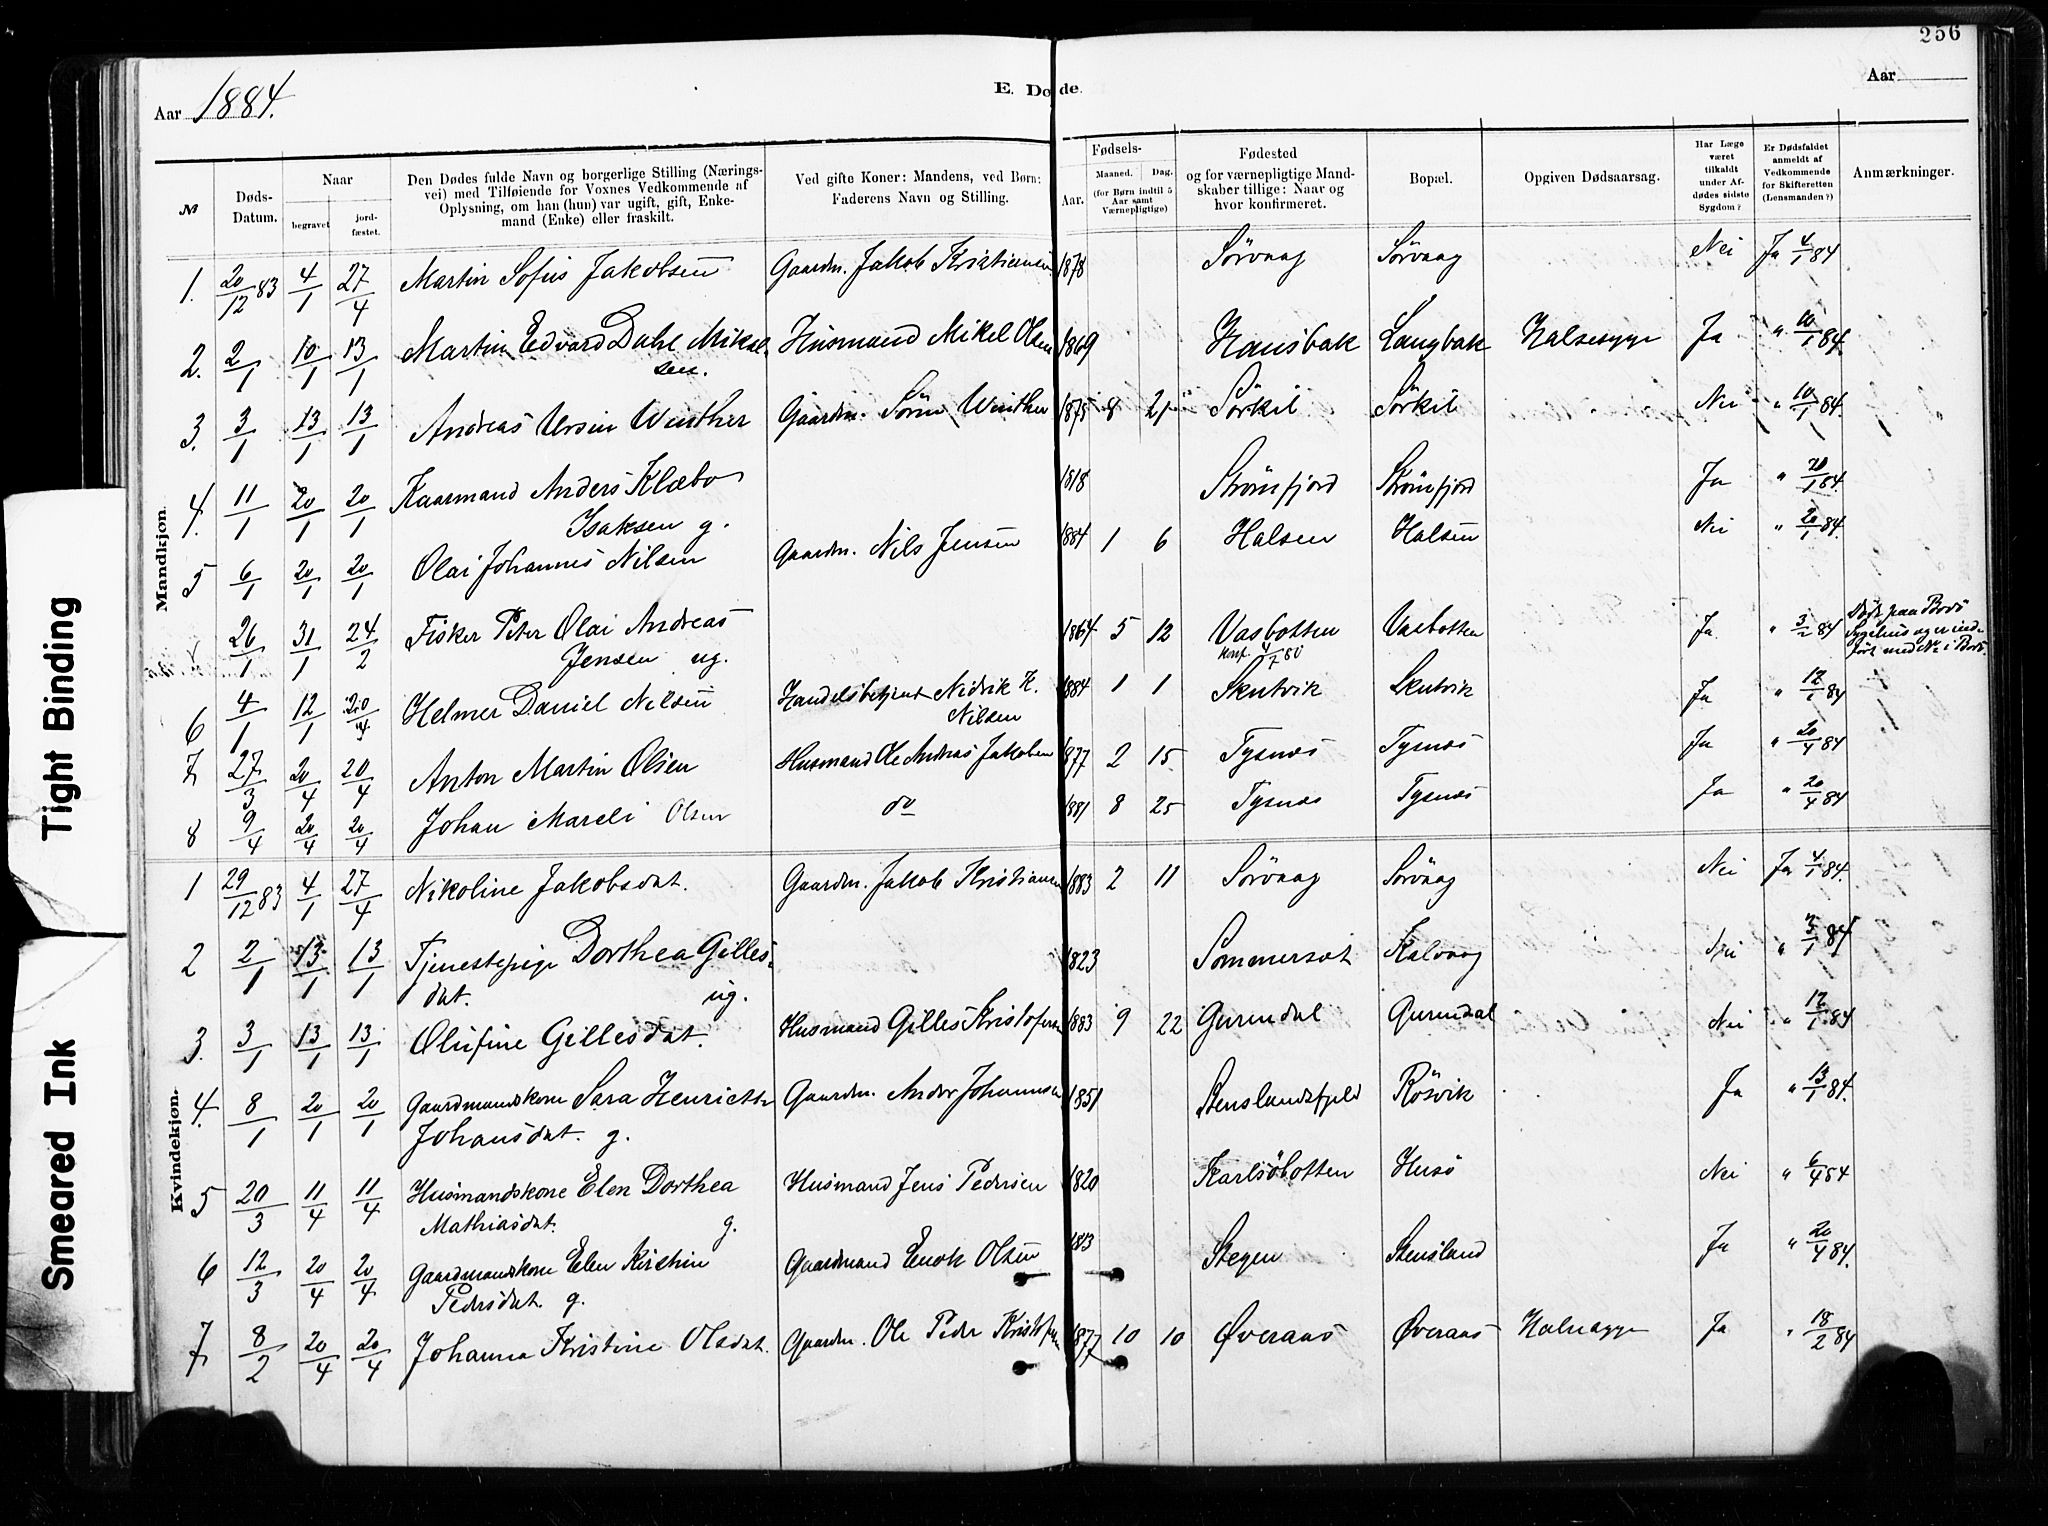 256
Aar 1884.
E. Døde.
Aar
№
Døds-Datum.
Naar
begravet
jordfæstet.
Den Dødes fulde Navn og borgerlige Stilling (Nærings-
vei) med Tilføiende for Voxnes Vedkommende af
Oplysning, om han (hun) var ugift, gift, Enke-
mand (Enke) eller fraskilt.
Ved gifte Koner: Mandens, ved Børn:
Faderens Navn og Stilling.
Fødsels-
Aar.
Maaned.
Dag.
(for Børn indtil 5
Aar samt
Værnepligtige)
Fødested
og for værnepligtige Mand-
skaber tillige: Naar og
hvor konfirmeret.
Bopæl.
Opgiven Dødsaarsag.
Har Læge
været
tilkaldt
under Af-
dødes sidste
Sygdom?
Er Dødsfaldet
anmeldt af
Vedkommende
for Skifteretten
(Lensmanden?)
Anmærkninger.
Mandkjøn.
1. 20/12 83 4/1 27/4 Martin Sofus Jakobsen Gaardm. Jakob Kristiansen 1878 Sørvaag Sørvaag Nei Ja 4/1 84
2. 2/1 10/1 13/1 Martin Edvard Dahl Mikal- Husmand Mikel Olsen 1869 Hansbak Langbak Halsesyge Ja " 10/1 84
sen.
3. 3/1 13/1 13/1 Andreas Ursin Winther Gaardm. Sören Winther 1875 8 21 Sörkil Sörkil Nei " 10/1 84.
4. 11/1 20/1 20/1 Kaarmand Anders Klæbo 1818 Strömfjord Strömfjord Ja " 20/1 84.
Isaksen g.
5 6/1 20/1 20/1 Olai Johannes Nilsen Gaardm. Nils Jensen 1884 1 6 Halsen Halsen Nei " 20/1 84.
26/1 31/1 24/2 Fisker Peter Olai Andreas 1864 5 12 Vasbotten Vasbotten Ja " 3/2 84 Död paa Bodö
Jensen ug. konf. 4/7 80 Sygehus og er ind-
fört med No i Bodö.
6 4/1 12/1 20/4 Helmer Daniel Nilsen Handelsbetjent Nedrik H. 1884 1 1 Skutvik Skutvik Ja " 12/1 84
Nilsen
7 27/3 20/4 20/4 Anton Martin Olsen Husmand Ole Andreas Jakobsen 1877 2 15 Tysnæs Tysnæs Ja " 20/4 84
8 9/4 20/4 20/4 Johan Mareli Olsen do 1881 8 25 Tysnæs Tysnæs Ja " 20/4 84
Kvindekjøn.
1 29/12 83 4/1 27/4 Nikoline Jakobsdat. Gaardm. Jakob Kristiansen 1883 2 11 Sørvaag Sørvaag Nei Ja 4/1 84.
2 2/1 13/1 13/1 Tjenestepige Dorthea Gilles- 1823 Sommerset Kalvaag Nei " 3/1 84
dat. ug.
3. 3/1 13/1 13/1 Olufine Gillesdat. Husmand Gilles Kristofersen 1883 9 22 Gurendal Gurendal Nei " 12/1 84
4. 8/1 20/1 20/1 Gaardmandskone Sara Henriette Gaardm. Anders Johannesen 1851 Stenslandsfjeld Rösvik Ja " 13/1 84.
Johansdat. g.
5 20/3 11/4 11/4 Husmandskone Elen Dorthea Husmand Jens Pedersen 1820 Karlsöbotten Husö Nei " 6/4 84
Mathiasdat. g.
6 12/3 20/4 20/4 Gaardmandskone Elen Kirstin Gaardmand Enok Olsen 1813 Stegen Stensland Ja " 20/4 84.
Pedersdat. g.
7 8/2 20/4 20/4 Johanna Kristine Olsdat. Gaardm. Ole Peder Kristofersen 1877 10 10 Øveraas Øveraas Halssyge Ja " 18/2 84
Tight Binding
Smeared Ink